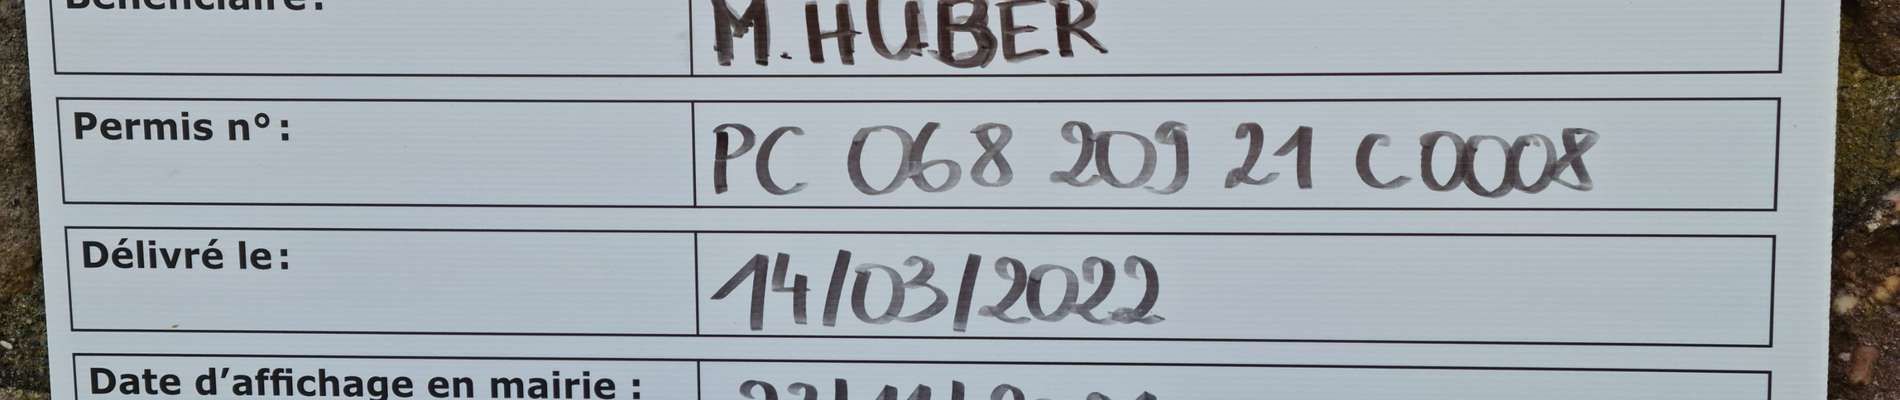 Bénéficiaire: M. HUBER
Permis n°: PC 068 209 21 C0008
Délivré le: 14/03/2022
Date d'affichage en mairie :